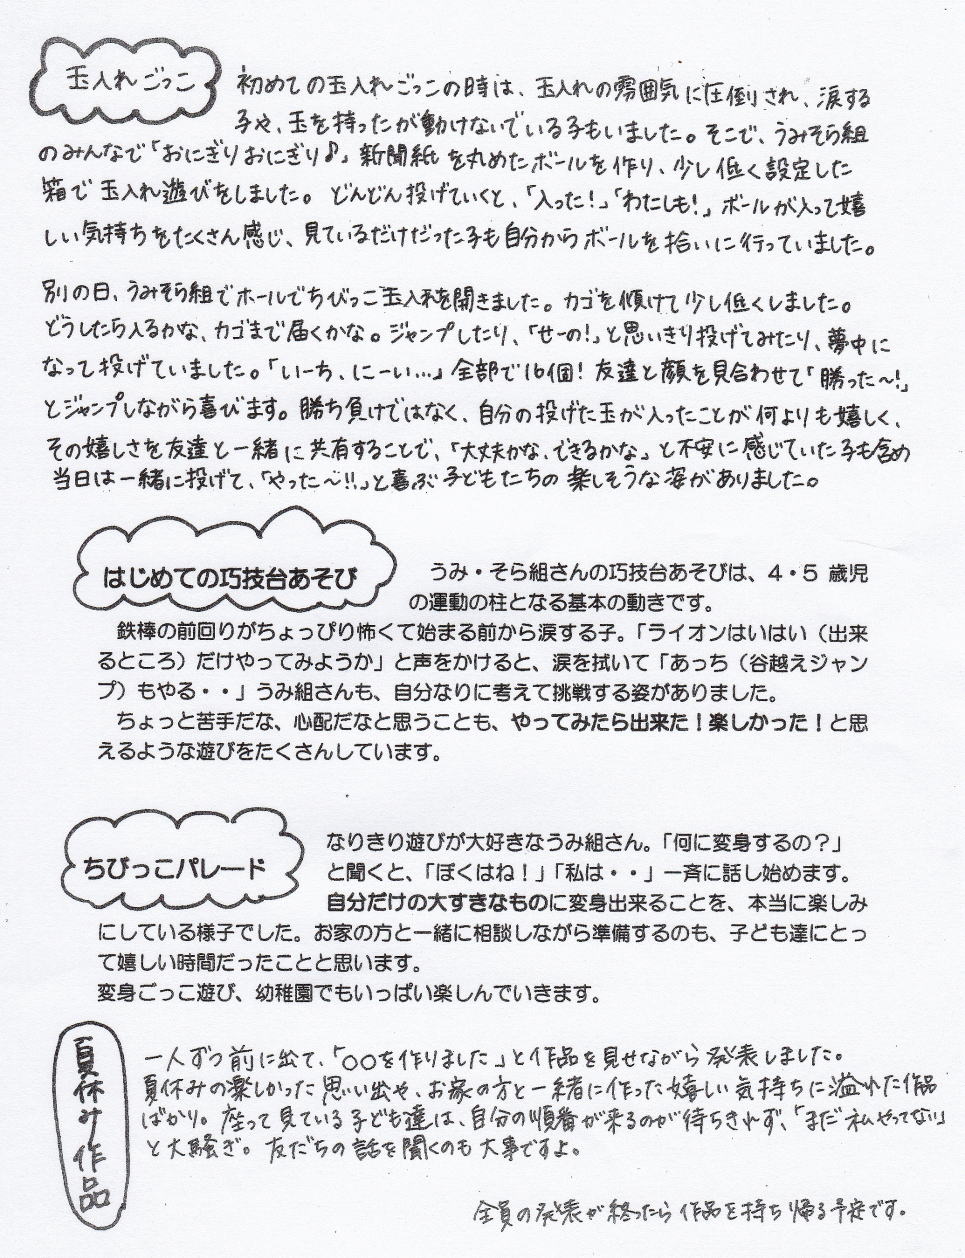 玉入れごっこ
初めての玉入れごっこの時は、玉入れの雰囲気に圧倒され、涙する
子や、玉を持ったが動けないでいる子もいました。そこで、うみそら組
のみんなで「おにぎりおにぎり♪」新聞紙を丸めたボールを作り、少し低く設定した
箱で玉入れ遊びをしました。どんどん投げていくと、「入った!」「わたしも!」ボールが入って嬉
しい気持ちをたくさん感じ、見ているだけだった子も自分からボールを拾いに行っていました。
別の日、うみそら組でホールでちびっこ玉入れを開きました。カゴを傾けて少し低くしました。
どうしたら入るかな、カゴまで届くかな。ジャンプしたり、「せーの!」と思いきり投げてみたり、夢中に
なって投げていました。「いーち、にーい…」全部で16個!友達と顔を見合わせて「勝った〜!」
とジャンプしながら喜びます。勝ち負けではなく、自分の投げた玉が入ったことが何よりも嬉しく、
その嬉しさを友達と一緒に共有することで、「大丈夫かな、できるかな」と不安に感じていた子も含め
当日は一緒に投げて、「やった〜!!」と喜ぶ子どもたちの楽しそうな姿がありました。
はじめての巧技台あそび
うみ・そら組さんの巧技台あそびは、4・5歳児
の運動の柱となる基本の動きです。
鉄棒の前回りがちょっぴり怖くて始まる前から涙する子。「ライオンはいはい（出来
るところ）だけやってみようか」と声をかけると、涙を拭いて「あっち（谷越えジャン
プ）もやる・・」うみ組さんも、自分なりに考えて挑戦する姿がありました。
ちょっと苦手だな、心配だなと思うことも、やってみたら出来た！楽しかった！と思
えるような遊びをたくさんしています。
ちびっこパレード
なりきり遊びが大好きなうみ組さん。「何に変身するの？」
と聞くと、「ぼくはね！」「私は・・」一斉に話し始めます。
自分だけの大すきなものに変身出来ることを、本当に楽しみ
にしている様子でした。お家の方と一緒に相談しながら準備するのも、子ども達にとっ
て嬉しい時間だったことと思います。
変身ごっこ遊び、幼稚園でもいっぱい楽しんでいきます。
夏休み作品
一人ずつ前に出て、「○○を作りました」と作品を見せながら発表しました。
夏休みの楽しかった思い出や、お家の方と一緒に作った嬉しい気持ちに溢れた作品
ばかり。座って見ている子ども達は、自分の順番が来るのが待ちきれず、「まだ私やってない」
と大騒ぎ。友だちの話を聞くのも大事ですよ。
全員の発表が終ったら作品を持ち帰る予定です。